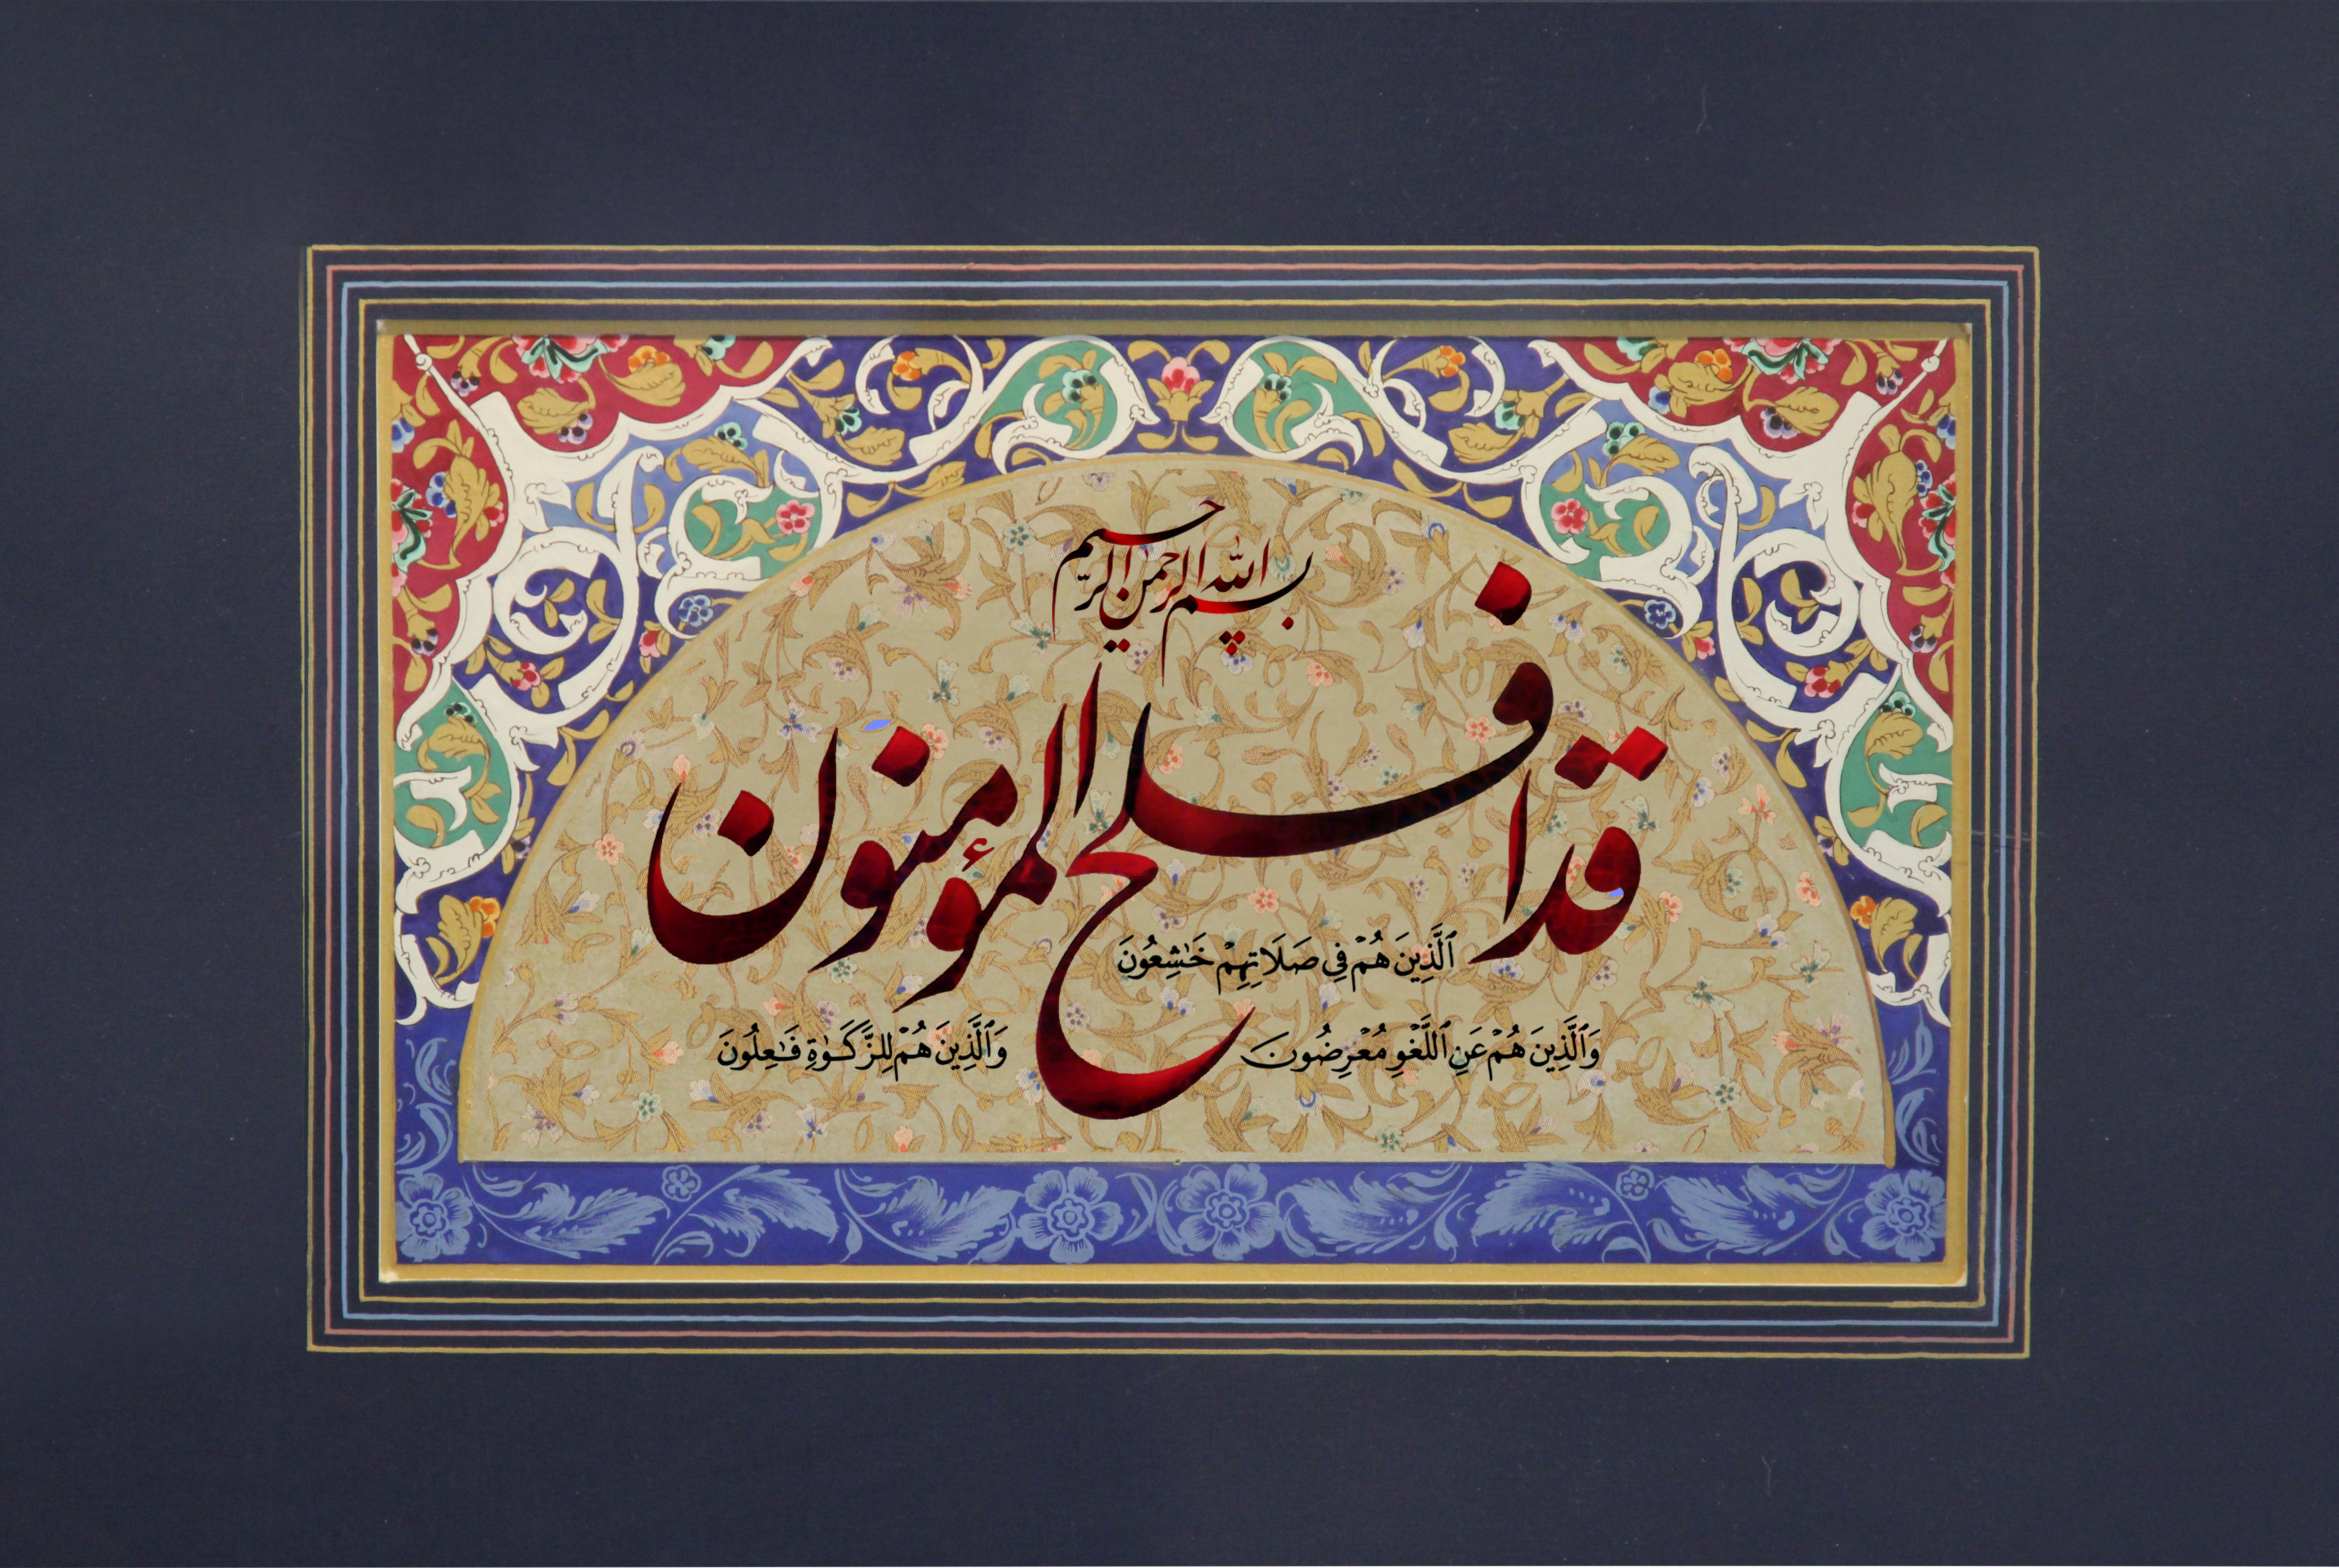 بسم الله الرحمن الرحیم
قد افلح المؤمنون
ٱلَّذِينَ هُمۡ فِي صَلَاتِهِمۡ خَٰشِعُونَ
وَٱلَّذِينَ هُمۡ عَنِ ٱللَّغۡوِ مُعۡرِضُونَ
وَٱلَّذِينَ هُمۡ لِلزَّكَوٰةِ فَٰعِلُونَ